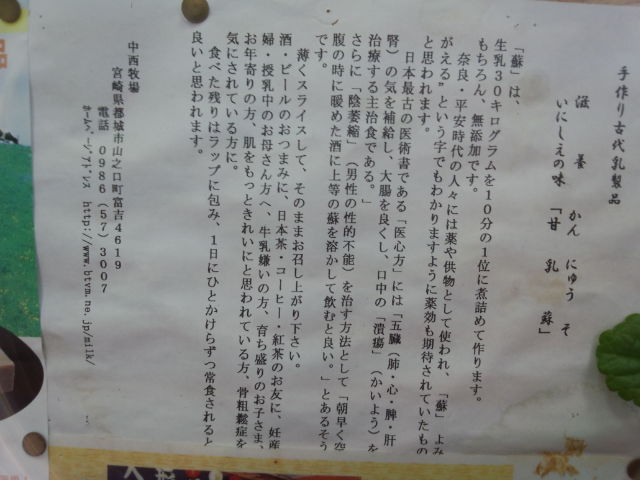 手作り古代乳製品
滋養
いにしえの味
かん にゅう そ
「甘乳蘇」
「蘇」は、
生乳30キログラムを10分の1位に煮詰めて作ります。
もちろん、無添加です。
奈良・平安時代の人々には薬や供物として使われ、「蘇」よみ
がえる”という字でもわかりますように薬効も期待されていたもの
と思われます。
日本最古の医術書である「医心方」には「五臓（肺・心・脾・肝
腎）の気を補給し、大腸を良くし、口中の「潰瘍」（かいよう）を
治療する主治食である。」
さらに「陰萎縮」（男性の性的不能）を治す方法として「朝早く空
腹の時に暖めた酒に上等の蘇を溶かして飲むと良い。」とあるそう
です。
薄くスライスして、そのままお召し上がり下さい。
酒・ビールのおつまみに、日本茶・コーヒー・紅茶のお友に、妊産
婦・授乳中のお母さん方へ、牛乳嫌いの方、育ち盛りのお子さま、
お年寄りの方、肌をもっときれいにと思われている方、骨粗鬆症を
気にされている方に。
食べた残りはラップに包み、1日にひとかけらずつ常食されると
良いと思われます。
中西牧場
宮崎県都城市山之口町富吉4619
電話 0986(57)3007
ﾎｰﾑﾍﾟｰｼﾞｱﾄﾞﾚｽ http://www.btvm.ne.jp/milk/